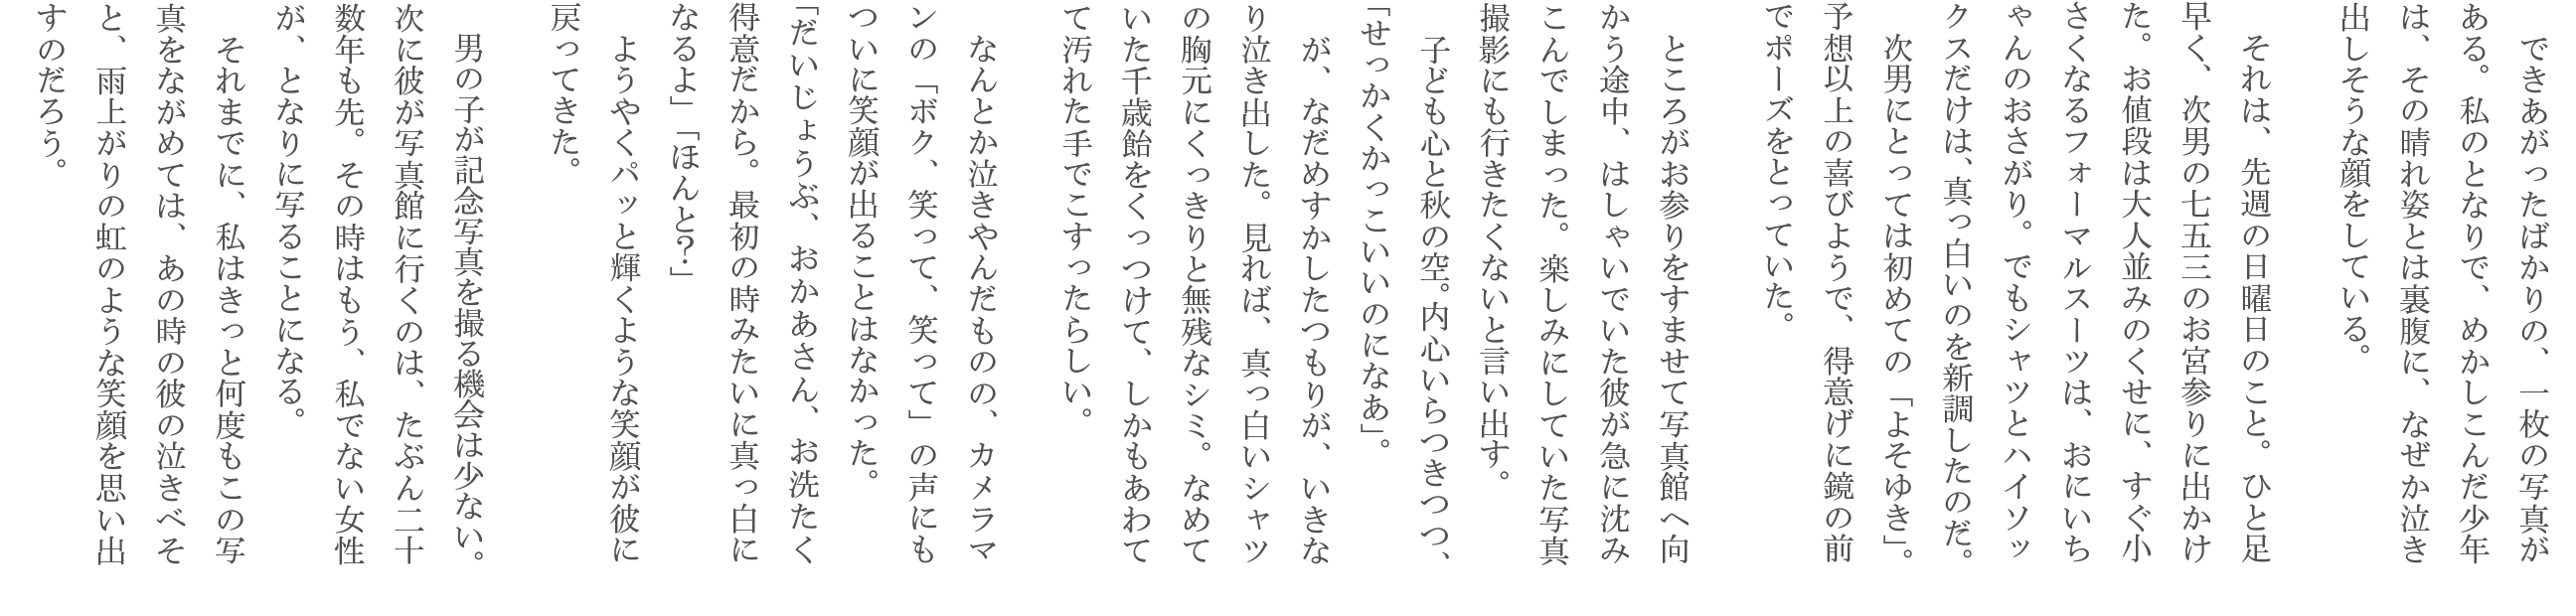 できあがったばかりの、一枚の写真が
ある。私のとなりで、めかしこんだ少年
は、その晴れ姿とは裏腹に、なぜか泣き
出しそうな顔をしている。
それは、先週の日曜日のこと。ひと足
早く、次男の七五三のお宮参りに出かけ
た。お値段は大人並みのくせに、すぐ小
さくなるフォーマルスーツは、おにいち
ゃんのおさがり。でもシャツとハイソッ
クスだけは、真っ白いのを新調したのだ。
次男にとっては初めての「よそゆき」。
予想以上の喜びようで、得意げに鏡の前
でポーズをとっていた。
ところがお参りをすませて写真館へ向
かう途中、はしゃいでいた彼が急に沈み
こんでしまった。楽しみにしていた写真
撮影にも行きたくないと言い出す。
子ども心と秋の空。内心いらつきつつ、
「せっかくかっこいいのになあ」。
が、なだめすかしたつもりが、いきな
り泣き出した。見れば、真っ白いシャツ
の胸元にくっきりと無残なシミ。なめて
いた千歳飴をくっつけて、しかもあわて
て汚れた手でこすったらしい。
なんとか泣きやんだものの、カメラマ
ンの「ボク、笑って、笑って」の声にも
ついに笑顔が出ることはなかった。
「だいじょうぶ、おかあさん、お洗たく
得意だから。最初の時みたいに真っ白に
なるよ」「ほんと？」
ようやくパッと輝くような笑顔が彼に
戻ってきた。
男の子が記念写真を撮る機会は少ない。
次に彼が写真館に行くのは、たぶん二十
数年も先。その時はもう、私でない女性
が、となりに写ることになる。
それまでに、私はきっと何度もこの写
真をながめては、あの時の彼の泣きべそ
と、雨上がりの虹のような笑顔を思い出
すのだろう。